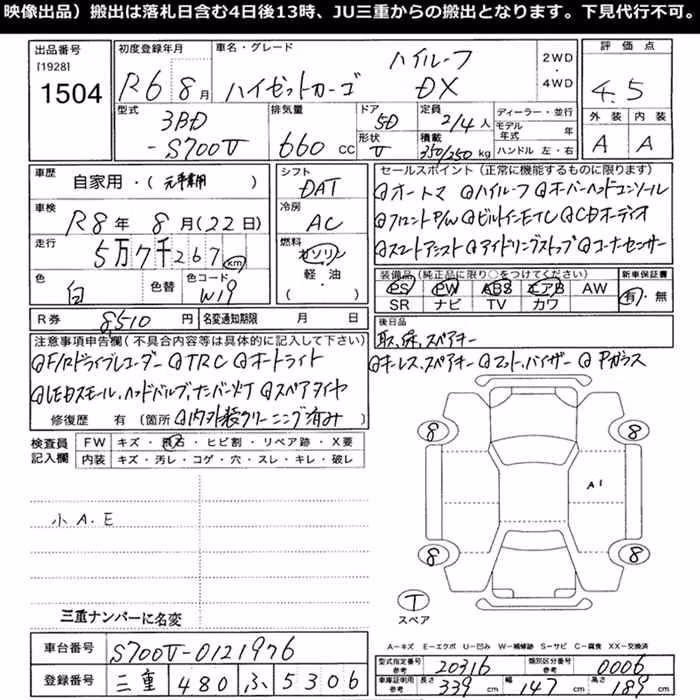 映像出品）搬出は落札日含む4日後13時、JU三重からの搬出となります。下見代行不可。
出品番号 [1928] 1504
初度登録年月 R6 8月
車名・グレード ハイゼットカーゴ ハイルーフ DX 2WD・4WD
評価点 4.5
型式 3BD-S700V
排気量 660 CC
ドア 5D 形状 V
定員 2/4人 積載 350/250 kg
ディーラー・並行
モデル年式 年
ハンドル 左・右
外装 A 内装 A
車歴 自家用・(元事業用)
車検 R8年 8月(22日)
走行 5万7千267 km
色 白 色替 色コード W19
シフト DAT
冷房 AC
燃料 ガソリン・軽・油・( )
セールスポイント（正常に機能するものに限ります）
@オートマ @ハイルーフ @オーバーヘッドコンソール
@フロントP/W @ビルトインETC @CDオーディオ
@スマートアシスト @アイドリングストップ @コーナーセンサー
装備品（純正品に限り○をつけてください）
PS PW ABS エアB AW
SR ナビ TV カワ
新車保証書 有・無
R券 8,510円 名変通知期限 月 日
後日品
取、保、スペアキー
注意事項申告欄(不具合内容等は具体的に記入して下さい)
@F/Rドライブレコーダー @TRC @オートライト
@LEDスモール、ヘッドバルブ、ナンバー灯 @スペアタイヤ
修復歴 有（箇所 @内外装クリーニング済み）
@キーレス、スペアキー @マット、バイザー @Pガラス
検査員記入欄
FW キズ・飛石・ヒビ割・リペア跡・X要
内装 キズ・汚レ・コゲ・穴・スレ・キレ・破レ
小A.E
8 8
A1
8 8
T
スペア
三重ナンバーに名変
A=キズ E=エクボ U=凹み W=補修跡 S=サビ C=腐食 XX=交換済
車台番号 S700V-0121976
登録番号 三重 480 ふ 5306
型式指定番号 参考 20316 類別区分番号 参考 0006
車庫証明用 参考 長さ 339 cm 幅 147 cm 高さ 189 cm